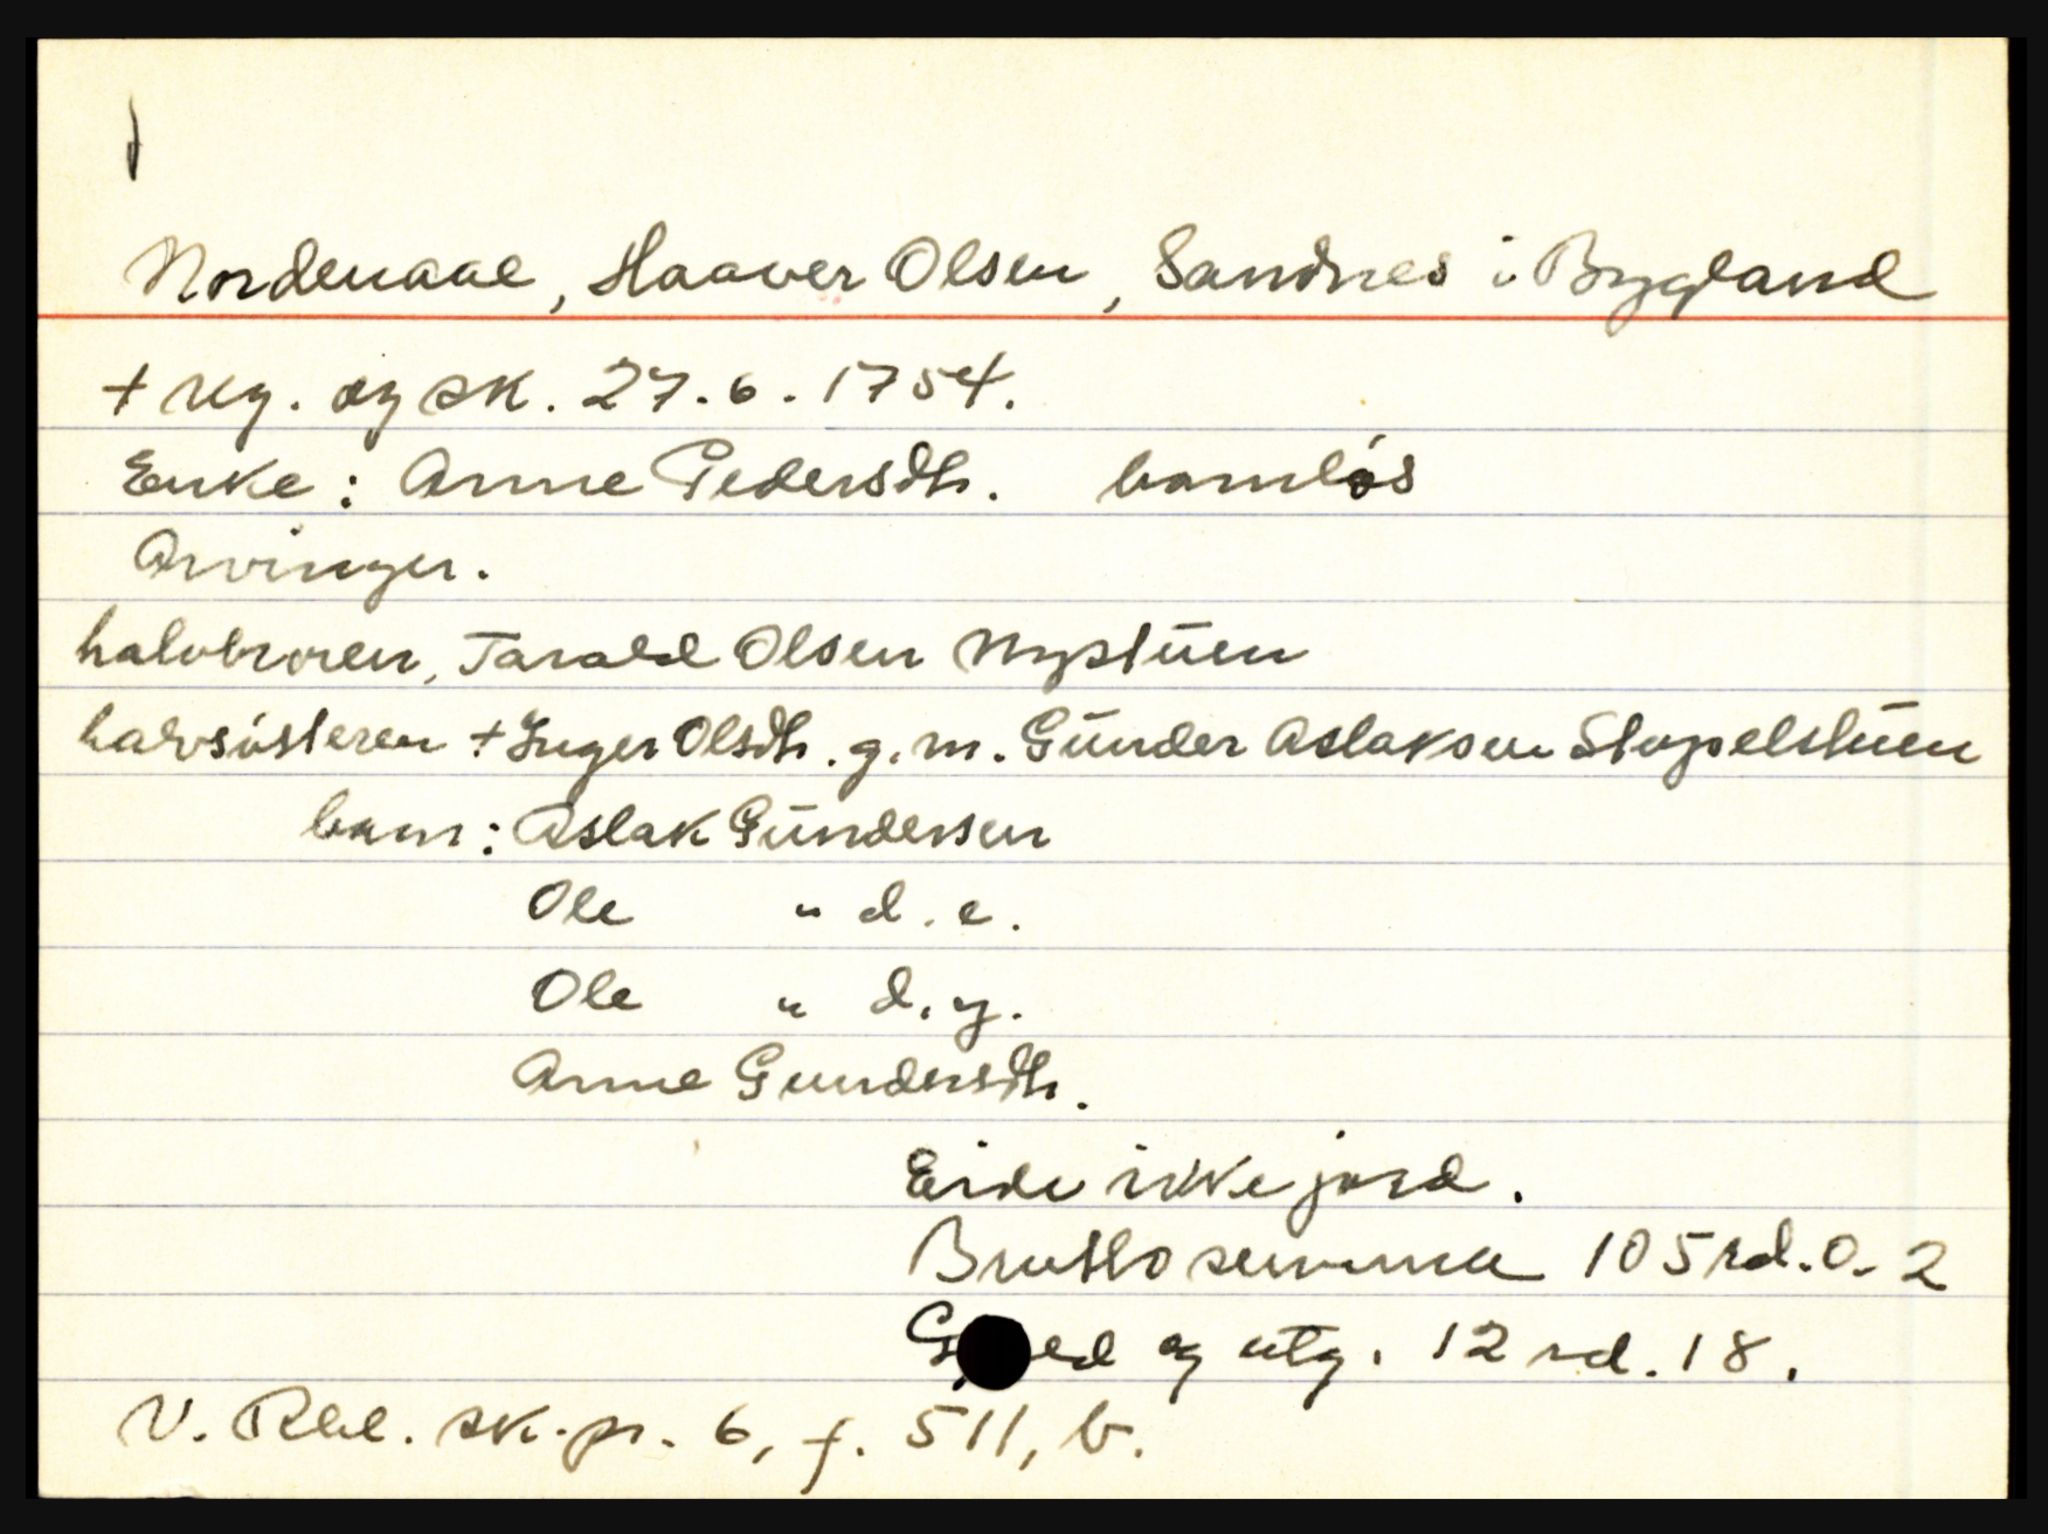 Nordenaae, Haaver Olsen, Sandnes i Bygland
+ reg. og sk. 27.6.1754.
Enke: Anne Pedersdtr. barnløs
Arvinger.
halvbroren, Tarald Olsen Nystüen
halvsösteren + Inger Olsdtr. g.m. Günder Aslaksen Stapelstüen
barn: Aslak Gündersen
Ole " d.e.
Ole " d.y.
Anne Gundersdtr.
Eide ikke jord.
Brutto summa 105 rd. 0. 2
og utg. 12 rd. 18.
V. Rbl. sk.pr. 6, f. 511, b.